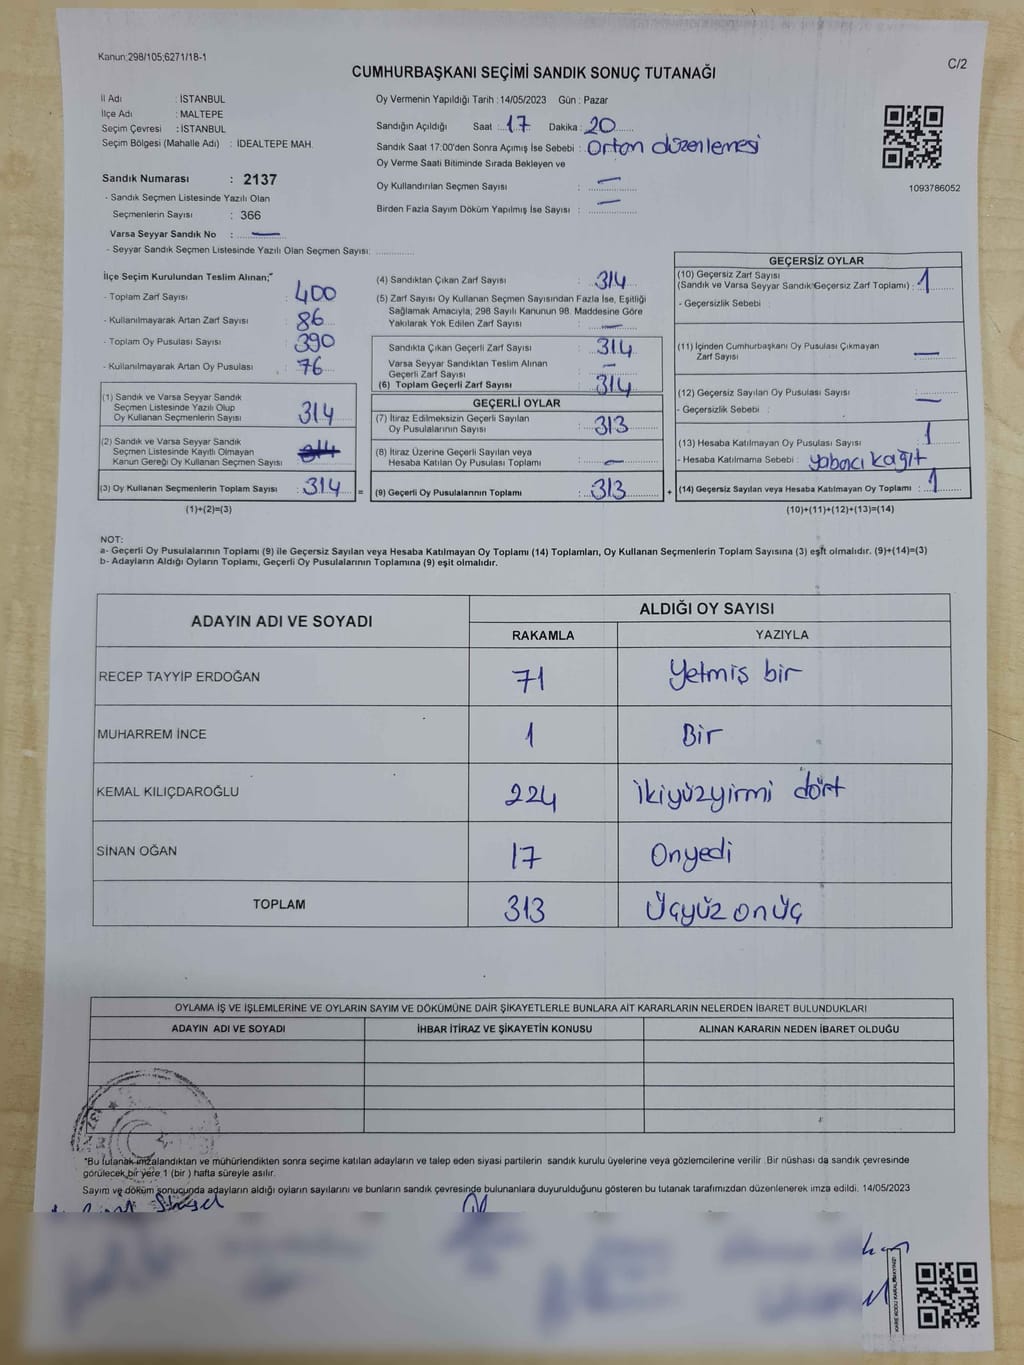 Kanun;298/105;6271/18-1
C/2
CUMHURBAŞKANI SEÇİMİ SANDIK SONUÇ TUTANAĞI
İl Adı : İSTANBUL
İlçe Adı : MALTEPE
Seçim Çevresi : İSTANBUL
Seçim Bölgesi (Mahalle Adı) : İDEALTEPE MAH.
Sandık Numarası : 2137
- Sandık Seçmen Listesinde Yazılı Olan
Seçmenlerin Sayısı : 366
Varsa Seyyar Sandık No : —
- Seyyar Sandık Seçmen Listesinde Yazılı Olan Seçmen Sayısı: ............
Oy Vermenin Yapıldığı Tarih : 14/05/2023 Gün : Pazar
Sandığın Açıldığı Saat : 17 Dakika : 20
Sandık Saat 17:00'den Sonra Açımış İse Sebebi : Ortan düzenlemesi
Oy Verme Saati Bitiminde Sırada Bekleyen ve
Oy Kullandırılan Seçmen Sayısı : —
Birden Fazla Sayım Döküm Yapılmış İse Sayısı : —
1093786052
İlçe Seçim Kurulundan Teslim Alınan;
- Toplam Zarf Sayısı : 400
- Kullanılmayarak Artan Zarf Sayısı : 86
- Toplam Oy Pusulası Sayısı : 390
- Kullanılmayarak Artan Oy Pusulası : 76
(1) Sandık ve Varsa Seyyar Sandık
Seçmen Listesinde Yazılı Olup
Oy Kullanan Seçmenlerin Sayısı : 314
(2) Sandık ve Varsa Seyyar Sandık
Seçmen Listesinde Kayıtlı Olmayan
Kanun Gereği Oy Kullanan Seçmen Sayısı : 314
(3) Oy Kullanan Seçmenlerin Toplam Sayısı : 314 =
(1)+(2)=(3)
(4) Sandıktan Çıkan Zarf Sayısı : 314
(5) Zarf Sayısı Oy Kullanan Seçmen Sayısından Fazla İse, Eşitliği
Sağlamak Amacıyla; 298 Sayılı Kanunun 98. Maddesine Göre
Yakılarak Yok Edilen Zarf Sayısı : —
Sandıkta Çıkan Geçerli Zarf Sayısı : 314
Varsa Seyyar Sandıktan Teslim Alınan
Geçerli Zarf Sayısı : —
(6) Toplam Geçerli Zarf Sayısı : 314
GEÇERLİ OYLAR
(7) İtiraz Edilmeksizin Geçerli Sayılan
Oy Pusulalarının Sayısı : 313
(8) İtiraz Üzerine Geçerli Sayılan veya
Hesaba Katılan Oy Pusulası Toplamı : —
(9) Geçerli Oy Pusulalarının Toplamı : 313 +
GEÇERSİZ OYLAR
(10) Geçersiz Zarf Sayısı
(Sandık ve Varsa Seyyar Sandık Geçersiz Zarf Toplamı) : 1
- Geçersizlik Sebebi :
(11) İçinden Cumhurbaşkanı Oy Pusulası Çıkmayan
Zarf Sayısı : —
(12) Geçersiz Sayılan Oy Pusulası Sayısı : —
- Geçersizlik Sebebi :
(13) Hesaba Katılmayan Oy Pusulası Sayısı : 1
- Hesaba Katılmama Sebebi : yabacı kağıt
(14) Geçersiz Sayılan veya Hesaba Katılmayan Oy Toplamı : 1
(10)+(11)+(12)+(13)=(14)
NOT:
a- Geçerli Oy Pusulalarının Toplamı (9) ile Geçersiz Sayılan veya Hesaba Katılmayan Oy Toplamı (14) Toplamları, Oy Kullanan Seçmenlerin Toplam Sayısına (3) eşit olmalıdır. (9)+(14)=(3)
b- Adayların Aldığı Oyların Toplamı, Geçerli Oy Pusulalarının Toplamına (9) eşit olmalıdır.
ADAYIN ADI VE SOYADI
ALDIĞI OY SAYISI
RAKAMLA YAZIYLA
RECEP TAYYİP ERDOĞAN 71 Yetmiş bir
MUHARREM İNCE 1 Bir
KEMAL KILIÇDAROĞLU 224 ikiyüzyirmi dört
SİNAN OĞAN 17 Onyedi
TOPLAM 313 Üçyüz onüç
OYLAMA İŞ VE İŞLEMLERİNE VE OYLARIN SAYIM VE DÖKÜMÜNE DAİR ŞİKAYETLERLE BUNLARA AİT KARARLARIN NELERDEN İBARET BULUNDUKLARI
ADAYIN ADI VE SOYADI İHBAR İTİRAZ VE ŞİKAYETİN KONUSU ALINAN KARARIN NEDEN İBARET OLDUĞU
"Bu tutanak imzalandıktan ve mühürlendikten sonra seçime katılan adayların ve talep eden siyasi partilerin sandık kurulu üyelerine veya gözlemcilerine verilir. Bir nüshası da sandık çevresinde
görülecek bir yere 1 (bir ) hafta süreyle asılır.
Sayım ve döküm sonucunda adayların aldığı oyların sayılarını ve bunların sandık çevresinde bulunanlara duyurulduğunu gösteren bu tutanak tarafımızdan düzenlenerek imza edildi. 14/05/2023